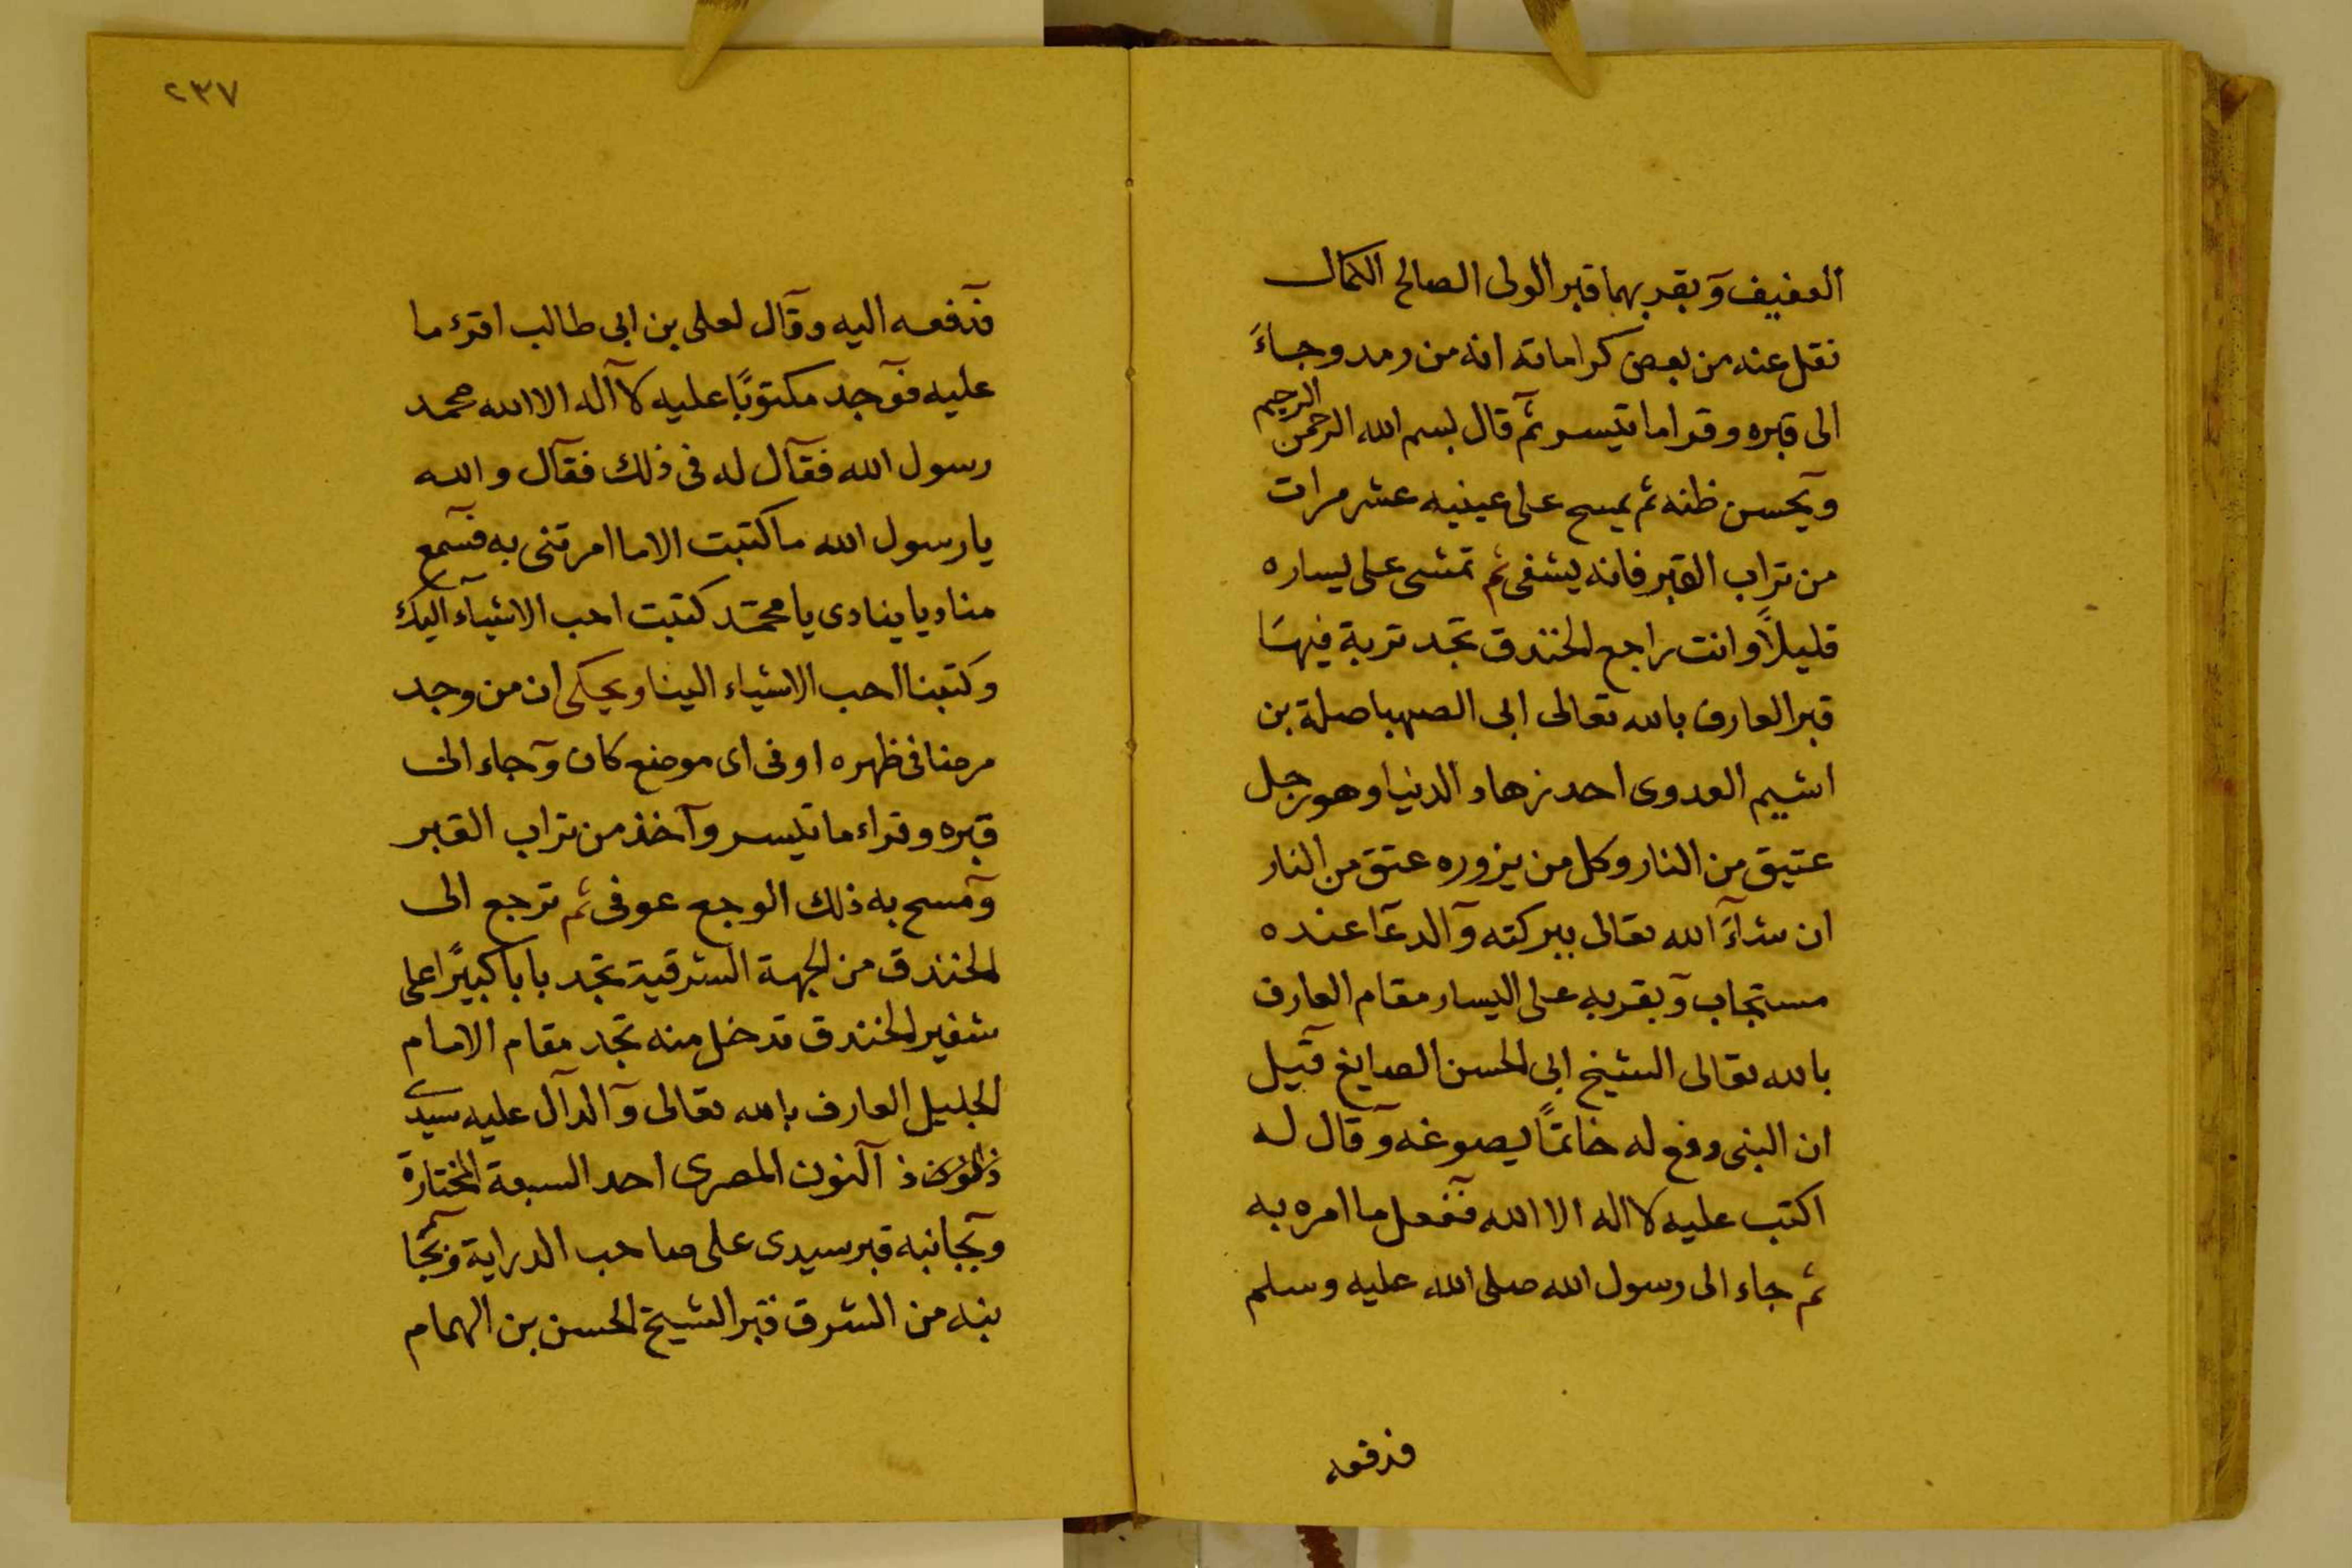 العفيف وبقربهما قبر الولى الصالح الكمال
نقل عنه من بعض كراماته انه من رمد وجاءَ
الى قبره وقرا ما تيسر ثم قال بسم الله الرحمن الرحيم
ويحسن ظنه ثم يمسح على عينيه عشر مرات
من تراب القبر فانه يشفى ثم تمشى على يساره
قليلاً وانت راجع الخندق تجد تربة فيها
قبر العارف بالله تعالى ابى الصهبا صلة بن
اشيم العدوى احد زهاد الدنيا وهو رجل
عتيق من النار وكل من يزوره عتق من النار
ان شاءَ الله تعالى ببركته والدعا عنده
مستجاب وبقربه على اليسار مقام العارف
بالله تعالى الشيخ ابى الحسن الصايغ قيل
ان النبى دفع له خاتمًا يصوغه وقال له
اكتب عليه لا اله الا الله ففعل ما امره به
ثم جاء الى رسول الله صلى الله عليه وسلم
فدفعه
٢٣٧
فدفعه اليه وقال لعلى بن ابى طالب اقرء ما
عليه فوجد مكتوبًا عليه لا اله الا الله محمد
رسول الله فقال له فى ذلك فقال والله
يا رسول الله ما كتبت الا ما امرتنى به فسمع
مناديا ينادى يا محمد كتبت احب الاشياء اليك
وكتبنا احب الاشياء الينا ويحكى ان من وجد
مرضا فى ظهره او فى اى موضع كان وجاء الى
قبره وقراء ما تيسر وآخذ من تراب القبر
ومسح به ذلك الوجع عوفى ثم ترجع الى
الخندق من الجهة الشرقية تجد بابا كبيرًا على
شفير الخندق تدخل منه تجد مقام الامام
الجليل العارف بالله تعالى والدال عليه سيدى
ذ النون المصرى احد السبعة المختارة
وبجانبه قبر سيدى على صاحب الدراية وبجا
نبه من الشرق قبر الشيخ الحسن بن الهمام